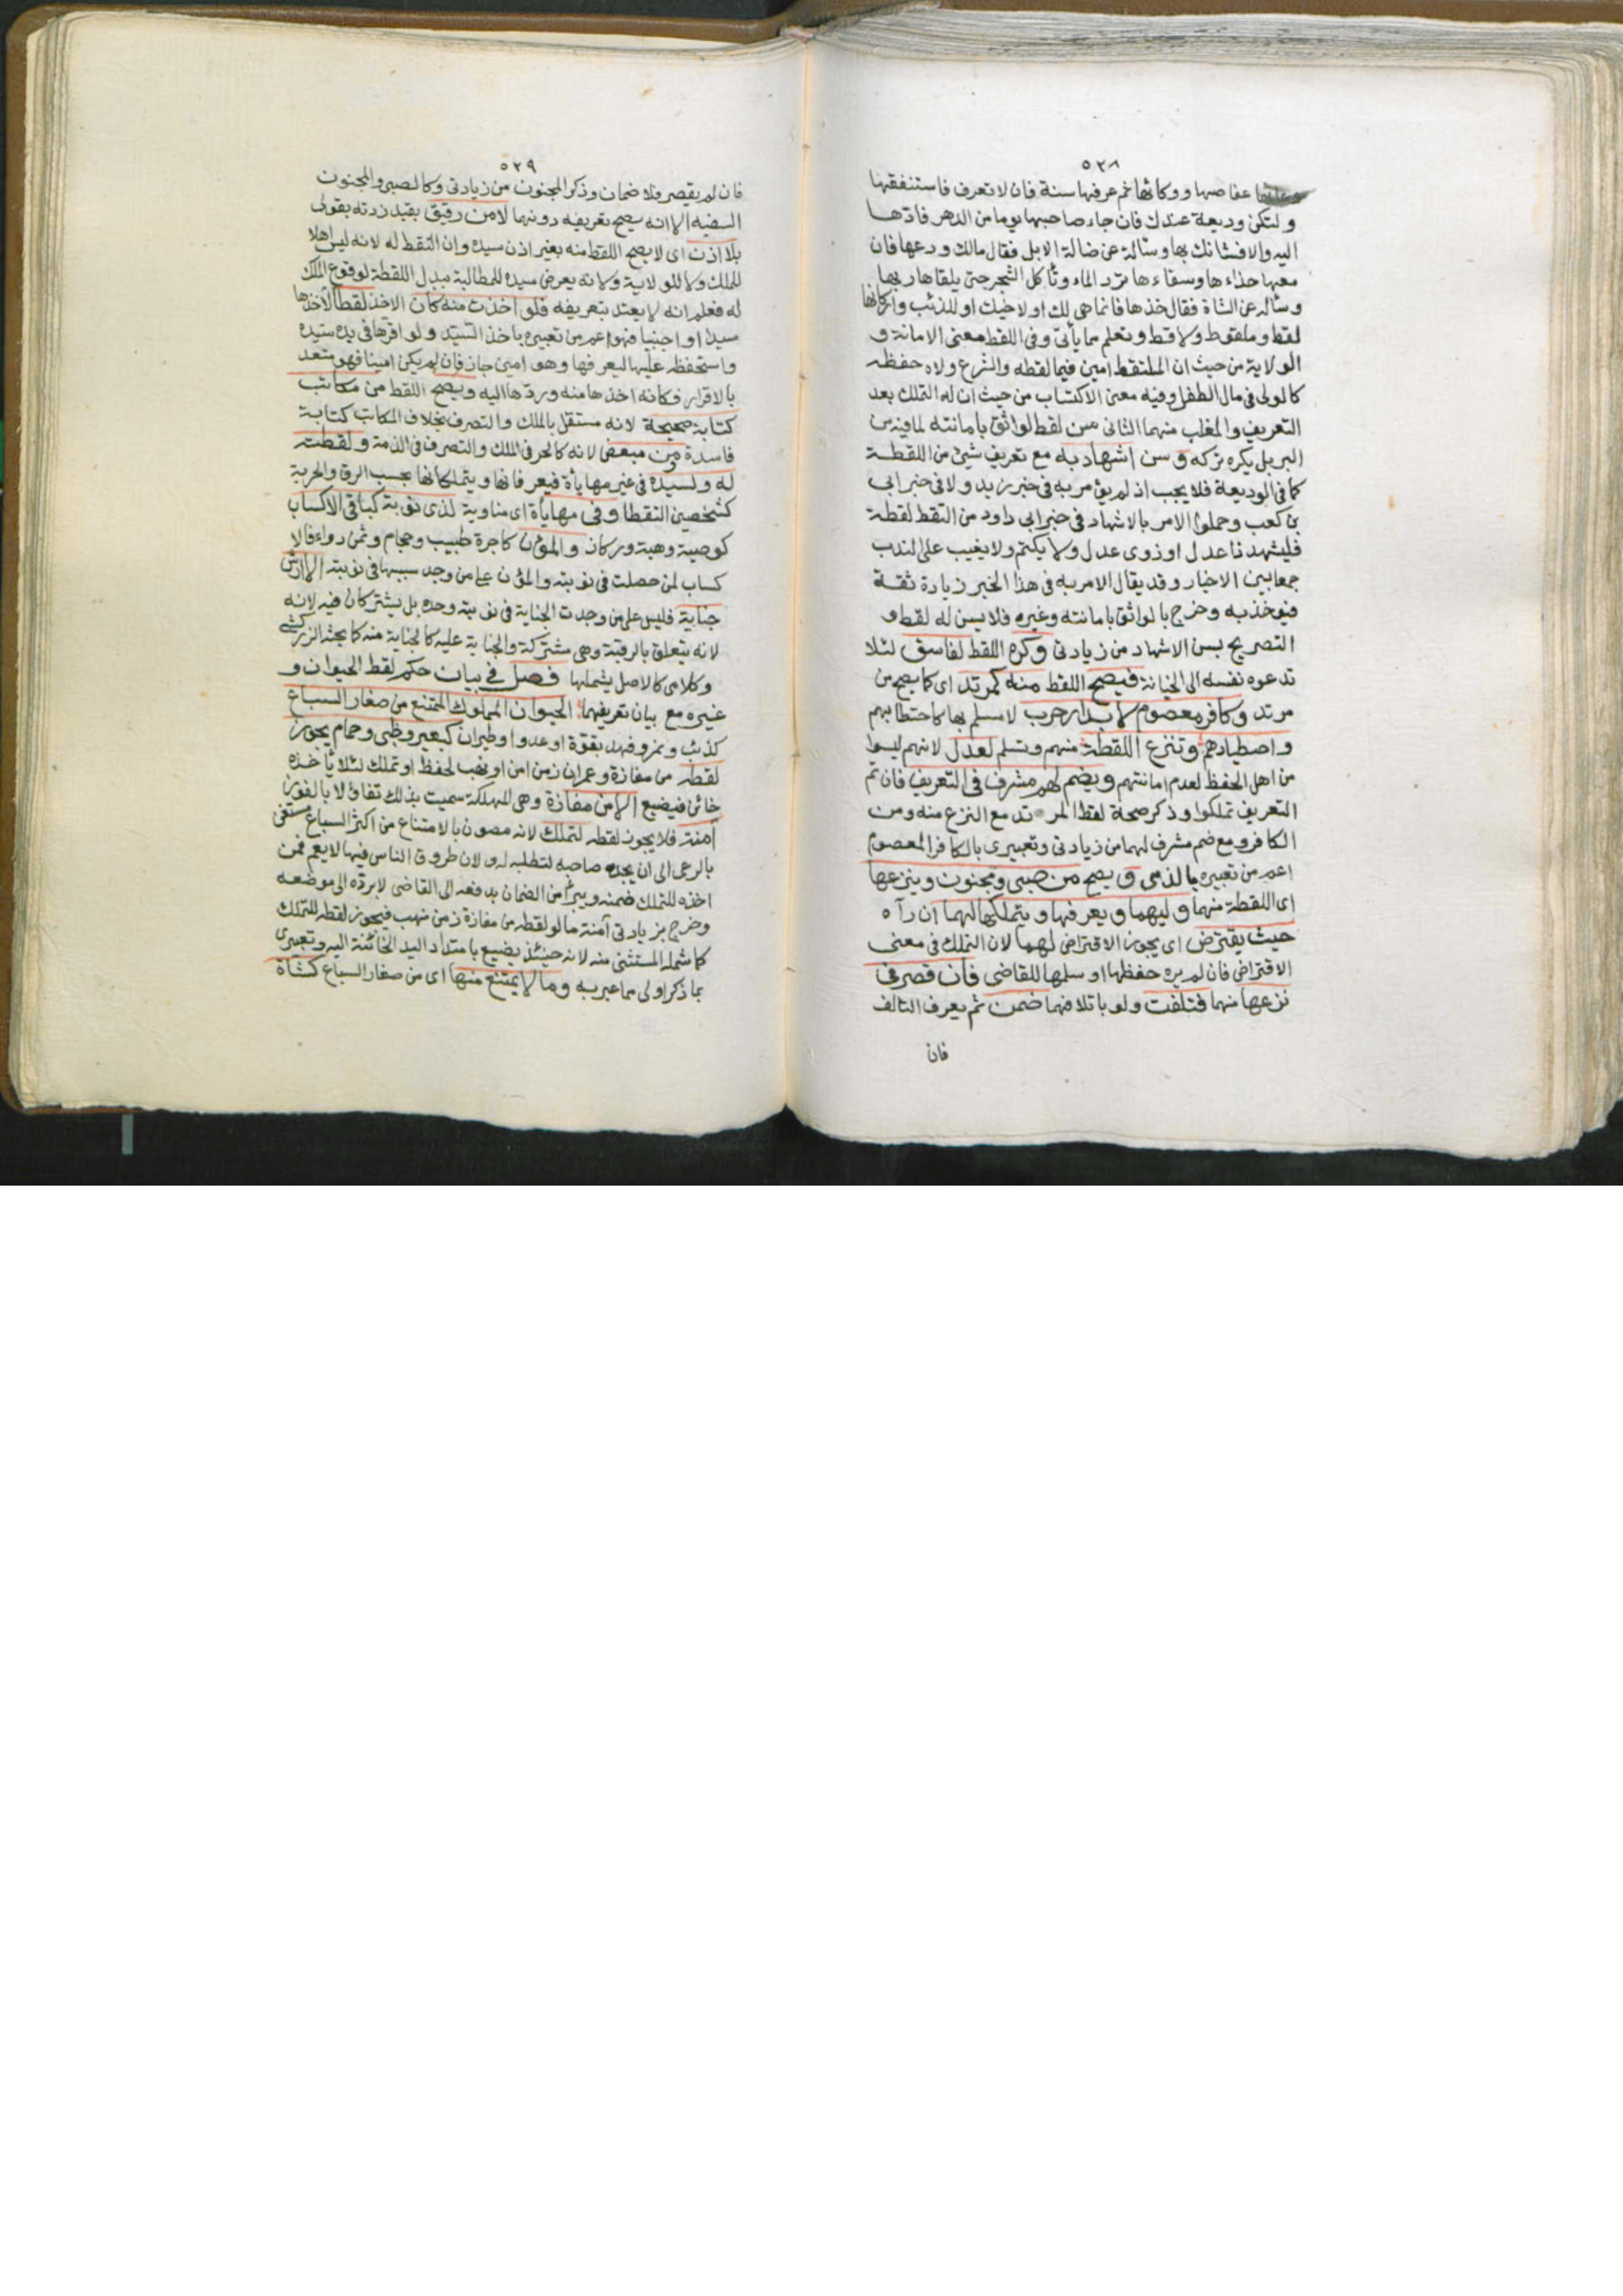 ٥٢٨
عفاصها ووكائها ثم عرفها سنة فان لا تعرف فاستنفقها
ولتكن وديعة عندك فان جاء صاحبها يوما من الدهر فادّها
اليه والا فشانك بها وسأله عن ضالة الابل فقال مالك ودعها فان
معها حذاءها وسقاءها ترد الماء وتأكل الشجر حتى يلقاها ربها
وسأله عن الشاة فقال خذها فانما هى لك او لاخيك او للذئب واركانها
لقط وملقوط ولاقط وتعلم مما يأتى وفى اللقط معنى الامانة و
الولاية من حيث ان الملتقط امين فيما لقطه والشرع ولاه حفظه
كالولى فى مال الطفل وفيه معنى الاكتساب من حيث ان له التملك بعد
التعريف والمغلب منهما الثانى سن لقط لواثق بامانته لما فيه من
البر بل يكره تركه و سن اشهاد به مع تعريف شىء من اللقطة
كما فى الوديعة فلا يجب اذ لم يؤمر به فى خبر زيد ولا فى خبر ابى
بن كعب وحملوا الامر بالاشهاد فى خبر ابى داود من التقط لقطة
فليشهد ذا عدل او ذوى عدل ولا يكتم ولا يغيب على الندب
جمعا بين الاخبار وقد يقال الامر به فى هذا الخبر زيادة ثقة
فيؤخذ به وخرج بالواثق بامانته وغيره فلا يسن له لقط و
التصريح بسن الاشهاد من زيادتى وكره اللقط لفاسق لئلا
تدعوه نفسه الى الخيانة فيصح اللقط منه كمرتد اى كما يصح من
مرتد وكافر معصوم لا بدار حرب لا مسلم بها كاحتطابهم
واصطيادهم وتنزع اللقطة منهم وتسلم لعدل لانهم ليسوا
من اهل الحفظ لعدم امانتهم ويضم لهم مشرف فى التعريف فان تم
التعريف تملكوا وذكر صحة لقط المرتد مع النزع منه ومن
الكافر ومع ضم مشرف لهما من زيادتى وتعبيرى بالكافر المعصوم
اعم من تعبيره بالذمى و يصح من صبى ومجنون وينزعها
اى اللقطة منهما وليهما ويعرفها ويتملكها لهما ان رآه
حيث يقترض اى يجوز الاقتراض لهما لان التملك فى معنى
الاقتراض فان لم يره حفظها او سلمها للقاضى فان قصر فى
نزعها منهما فتلفت ولو باتلافهما ضمن ثم يعرف التالف
فان
٥٢٩
فان لم يقصر فلا ضمان وذكر المجنون من زيادتى وكالصبى والمجنون
السفيه الا انه يصح تعريفه دونهما لا من رقيق بقيد زدته بقولى
بلا اذن اى لا يصح اللقط منه بغير اذن سيده وان التقط له لانه ليس اهلا
للملك ولا للولاية ولانه يعرض سيده للمطالبة ببدل اللقطة لوقوع الملك
له فعلم انه لا يعتد بتعريفه فلو اخذت منه كان الاخذ لقطا لآخذها
سيدا او اجنبيا فهو اعم من تعبيره باخذ السيد ولو اقرها فى يده سيده
واستحفظه عليها ليعرفها وهو امين جاز فان لم يكن امينا فهو متعد
بالاقرار فكانه اخذها منه وردها اليه ويصح اللقط من مكاتب
كتابة صحيحة لانه مستقل بالملك والتصرف بخلاف المكاتب كتابة
فاسدة ومن مبعض لانه كالحر فى الملك والتصرف فى الذمة ولقطته
له ولسيده فى غير مهايأة فيعرفانها ويتملكانها بحسب الرق والحرية
كشخصين التقطا وفى مهايأة اى مناوبة لذى نوبة كباقى الاكساب
كوصية وهبة وركاز والمؤن كاجرة طبيب وحجام وثمن دواء فالا
كساب لمن حصلت فى نوبته والمؤن على من وجد سببها فى نوبته الا ارش
جناية فليس على من وجدت الجناية فى نوبته وحده بل يشتركان فيه لانه
لانه يتعلق بالرقبة وهى مشتركة والجناية عليه كالجناية منه كما بحثه الزركشى
وكلامى كالاصل يشملها فصل فى بيان حكم لقط الحيوان و
غيره مع بيان تعريفهما الحيوان المملوك الممتنع من صغار السباع
كذئب ونمر وفهد بقوة او عدو او طيران كبعير وظبى وحمام يجوز
لقطه من مفازة وعمران زمن امن او نهب لحفظ او تملك لئلا يأخذه
خائن فيضيع الا من مفازة وهى المهلكة سميت بذلك تفاؤلا بالفوز
آمنة فلا يجوز لقطه لتملك لانه مصون بالامتناع من اكثر السباع مستغنى
بالرعى الى ان يجده صاحبه لتطلبه له ولان طروق الناس فيها لا يعم فمن
اخذه للتملك ضمنه ويبرأ من الضمان بدفعه الى القاضى لا برده الى موضعه
وخرج بزيادتى آمنة ما لو لقطه من مفازة زمن نهب فيجوز لقطه للتملك
كما شمله المستثنى منه لانه حينئذ يضيع بامتداد اليد الخائنة اليه وتعبيرى
بما ذكر اولى مما عبر به وما لا يمتنع منها اى من صغار السباع كشاة